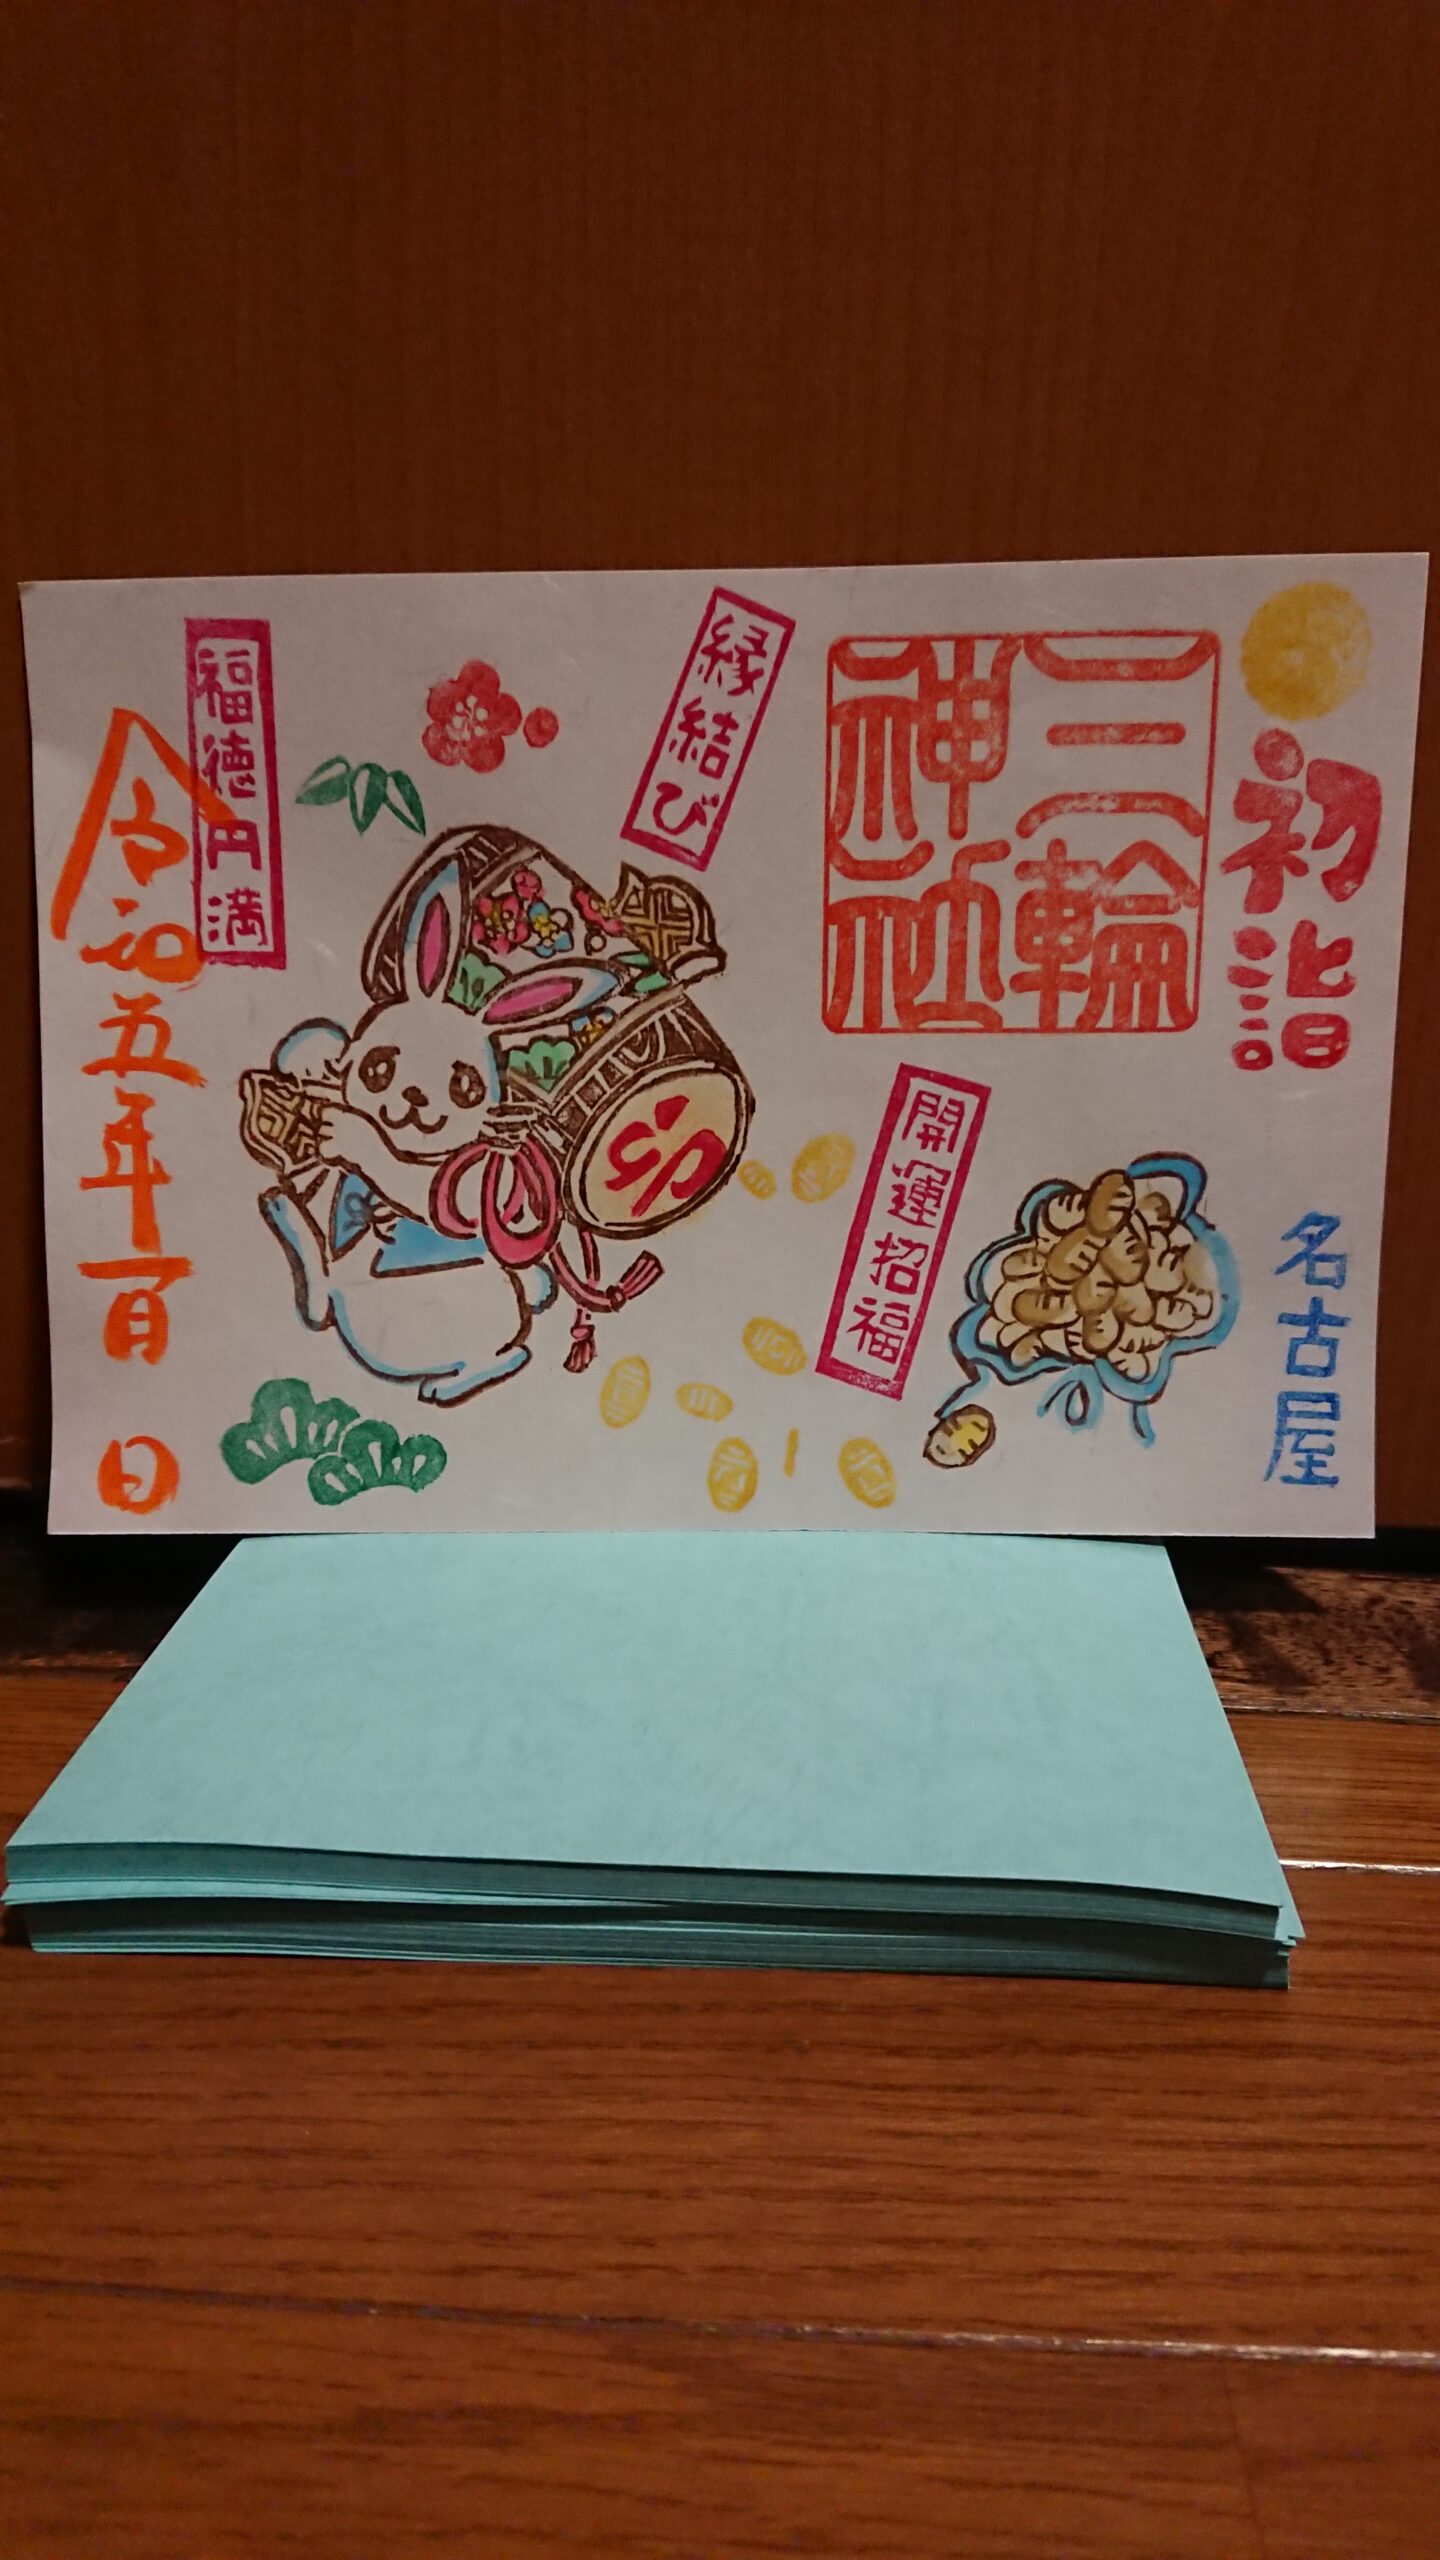 初詣
三輪
神社
名古屋
開運招福
縁結び
卯
福徳円満
令和五年一月 日